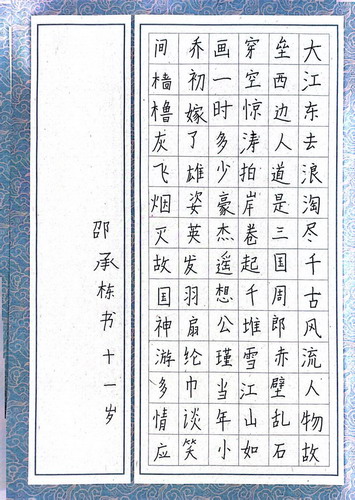 大江东去浪淘尽千古风流人物故
垒西边人道是三国周郎赤壁乱石
穿空惊涛拍岸卷起千堆雪江山如
画一时多少豪杰遥想公瑾当年小
乔初嫁了雄姿英发羽扇纶巾谈笑
间樯橹灰飞烟灭故国神游多情应
邵承栋书十一岁